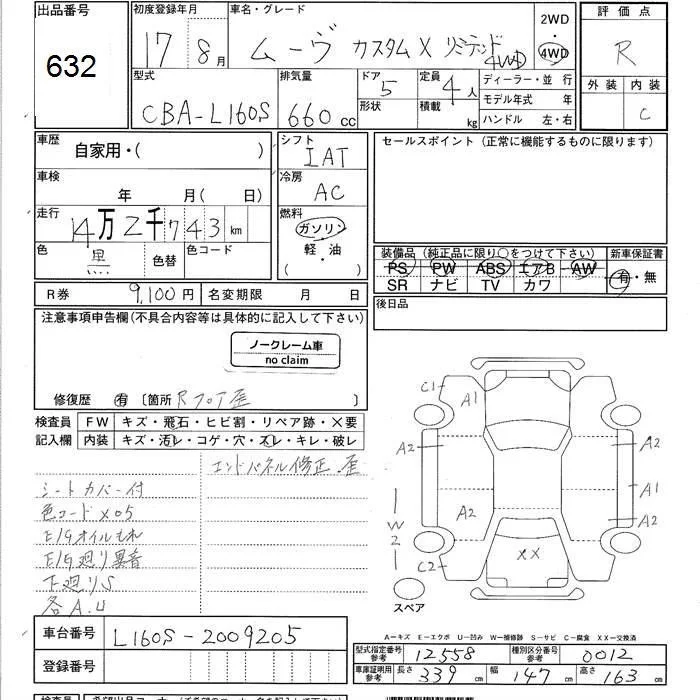 出品番号
632
初度登録年月
17年8月
車名・グレード
ムーヴ カスタムX リミテッド 4WD
2WD
4WD
評価点
R
外装 内装
C
型式
CBA-L160S
排気量
660 cc
ドア
5
形状
定員
4人
積載
kg
ディーラー・並行
モデル年式 年
ハンドル 左・右
車歴
自家用・( )
車検
年 月( 日)
走行
14万2千743 km
色
黒
色替
色コード
シフト
IAT
冷房
AC
燃料
ガソリン
軽・油
( )
セールスポイント (正常に機能するものに限ります)
装備品 (純正品に限り○をつけて下さい)
PS PW ABS エアB AW
SR ナビ TV カワ
新車保証書
有・無
後日品
R券 9,100円
名変期限 月 日
注意事項申告欄(不具合内容等は具体的に記入して下さい)
ノークレーム車
no claim
修復歴 有 〔箇所 Rフロア歪
検査員
記入欄
FW キズ・飛石・ヒビ割・リペア跡・×要
内装 キズ・汚レ・コゲ・穴・スレ・キレ・破レ
エンドパネル修正・歪
シートカバー付
色コードX05
E/Gオイルもれ
E/G廻り異音
下廻りS
各A.U
C1
A1
A2
A2
A1
A2
A2
W2
C2
XX
スペア
A−キズ E−エクボ U−凹み W−補修跡 S−サビ C−腐食 XX−交換済
車台番号
L160S-2009205
登録番号
型式指定番号
参考
12558
種別区分番号
参考
0012
車庫証明用
参考
長さ 339 cm
幅 147 cm
高さ 163 cm